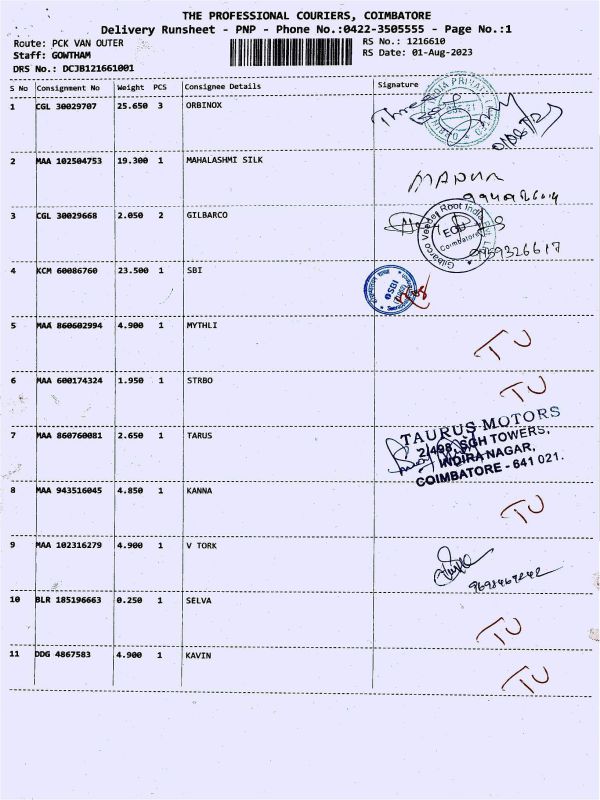 THE PROFESSIONAL COURIERS, COIMBATORE
Delivery Runsheet - PNP - Phone No.:0422-3505555 - Page No.:1
Route: PCK VAN OUTER
RS No.: 1216610
Staff: GOWTHAM
RS Date: 01-Aug-2023
DRS No.: DCJB121661001
S No Consignment No Weight PCS Consignee Details Signature
1 CGL 30029707 25.650 3 ORBINOX
Three
2 MAA 102504753 19.300 1 MAHALASHMI SILK
3 CGL 30029668 2.050 2 GILBARCO
Gilbarco Veeder Root India Pvt. Ltd.
Coimbatore
9959326617
4 KCM 60086760 23.500 1 SBI
SBI
5 MAA 860602994 4.900 1 MYTHLI
TU
6 MAA 600174324 1.950 1 STRBO
TU
7 MAA 860760081 2.650 1 TARUS
TAURUS MOTORS
2/498, SGH TOWERS,
INDIRA NAGAR,
COIMBATORE - 641 021.
8 MAA 943516045 4.850 1 KANNA
TU
9 MAA 102316279 4.900 1 V TORK
10 BLR 185196663 0.250 1 SELVA
TU
11 DDG 4867583 4.900 1 KAVIN
TU